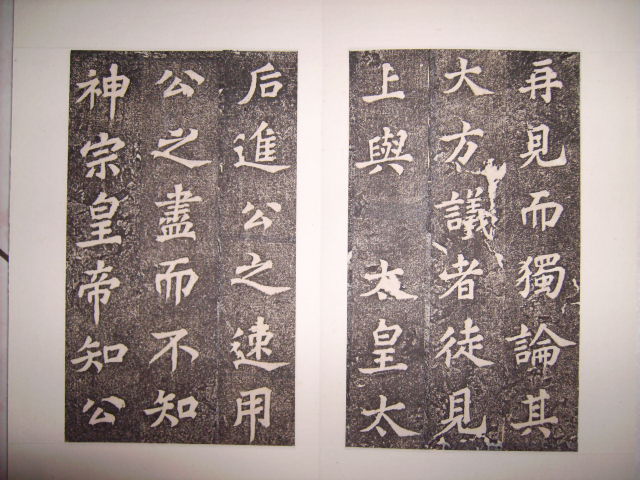 再見而獨論其
大方議者徒見
上與 太皇太
后進公之速用
公之盡而不知
神宗皇帝知公